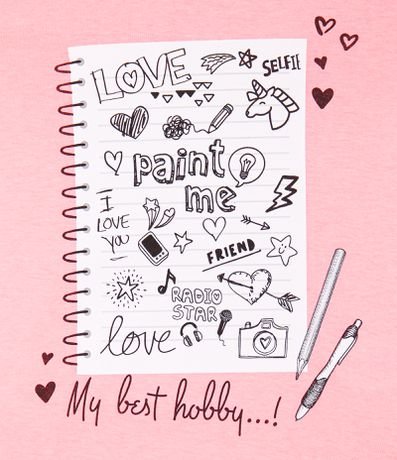 LOVE
SELFIE
paint
me
I
LOVE
YOU
FRIEND
RADIO
STAR
love
My best hobby...!